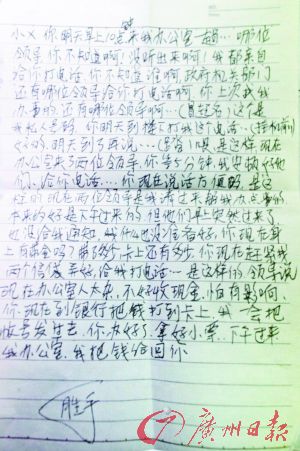 小× 你明天早上10点来我办公室一趟…哪位
领导,你不知道啊!没听出来啊!我都亲自
给你打电话,你不知道谁啊,政府机关部门
还有哪位领导给你打电话啊,你上次我
办事的还有哪位领导啊…(冒起名)这是
我私人号码,你明天到楼下打我这个电话…(挂机前)
明天到了再说…是这样,现在
办公室来了两位领导,你等5分钟,我安排好他
们,给你电话…你现在说话方便吗,是这
样的现在两位领导是我请过来帮我办点事的
本来约好是下午过来的,但他们早上突然过来了
也没给我通知,我什么也没准备好,你现在身
上有现金吗?有多少,卡上还有多少,你现在赶紧找
两个信封弄好,给我打电话…是这样的,领导说
现在办公室人太杂,不好收现金,怕有影响,
你现在到银行把钱打到卡上,我一会把
帐号发过去,你办好了,拿好小票,下午过来
我办公室,我把钱给回你
胜手
广州日报